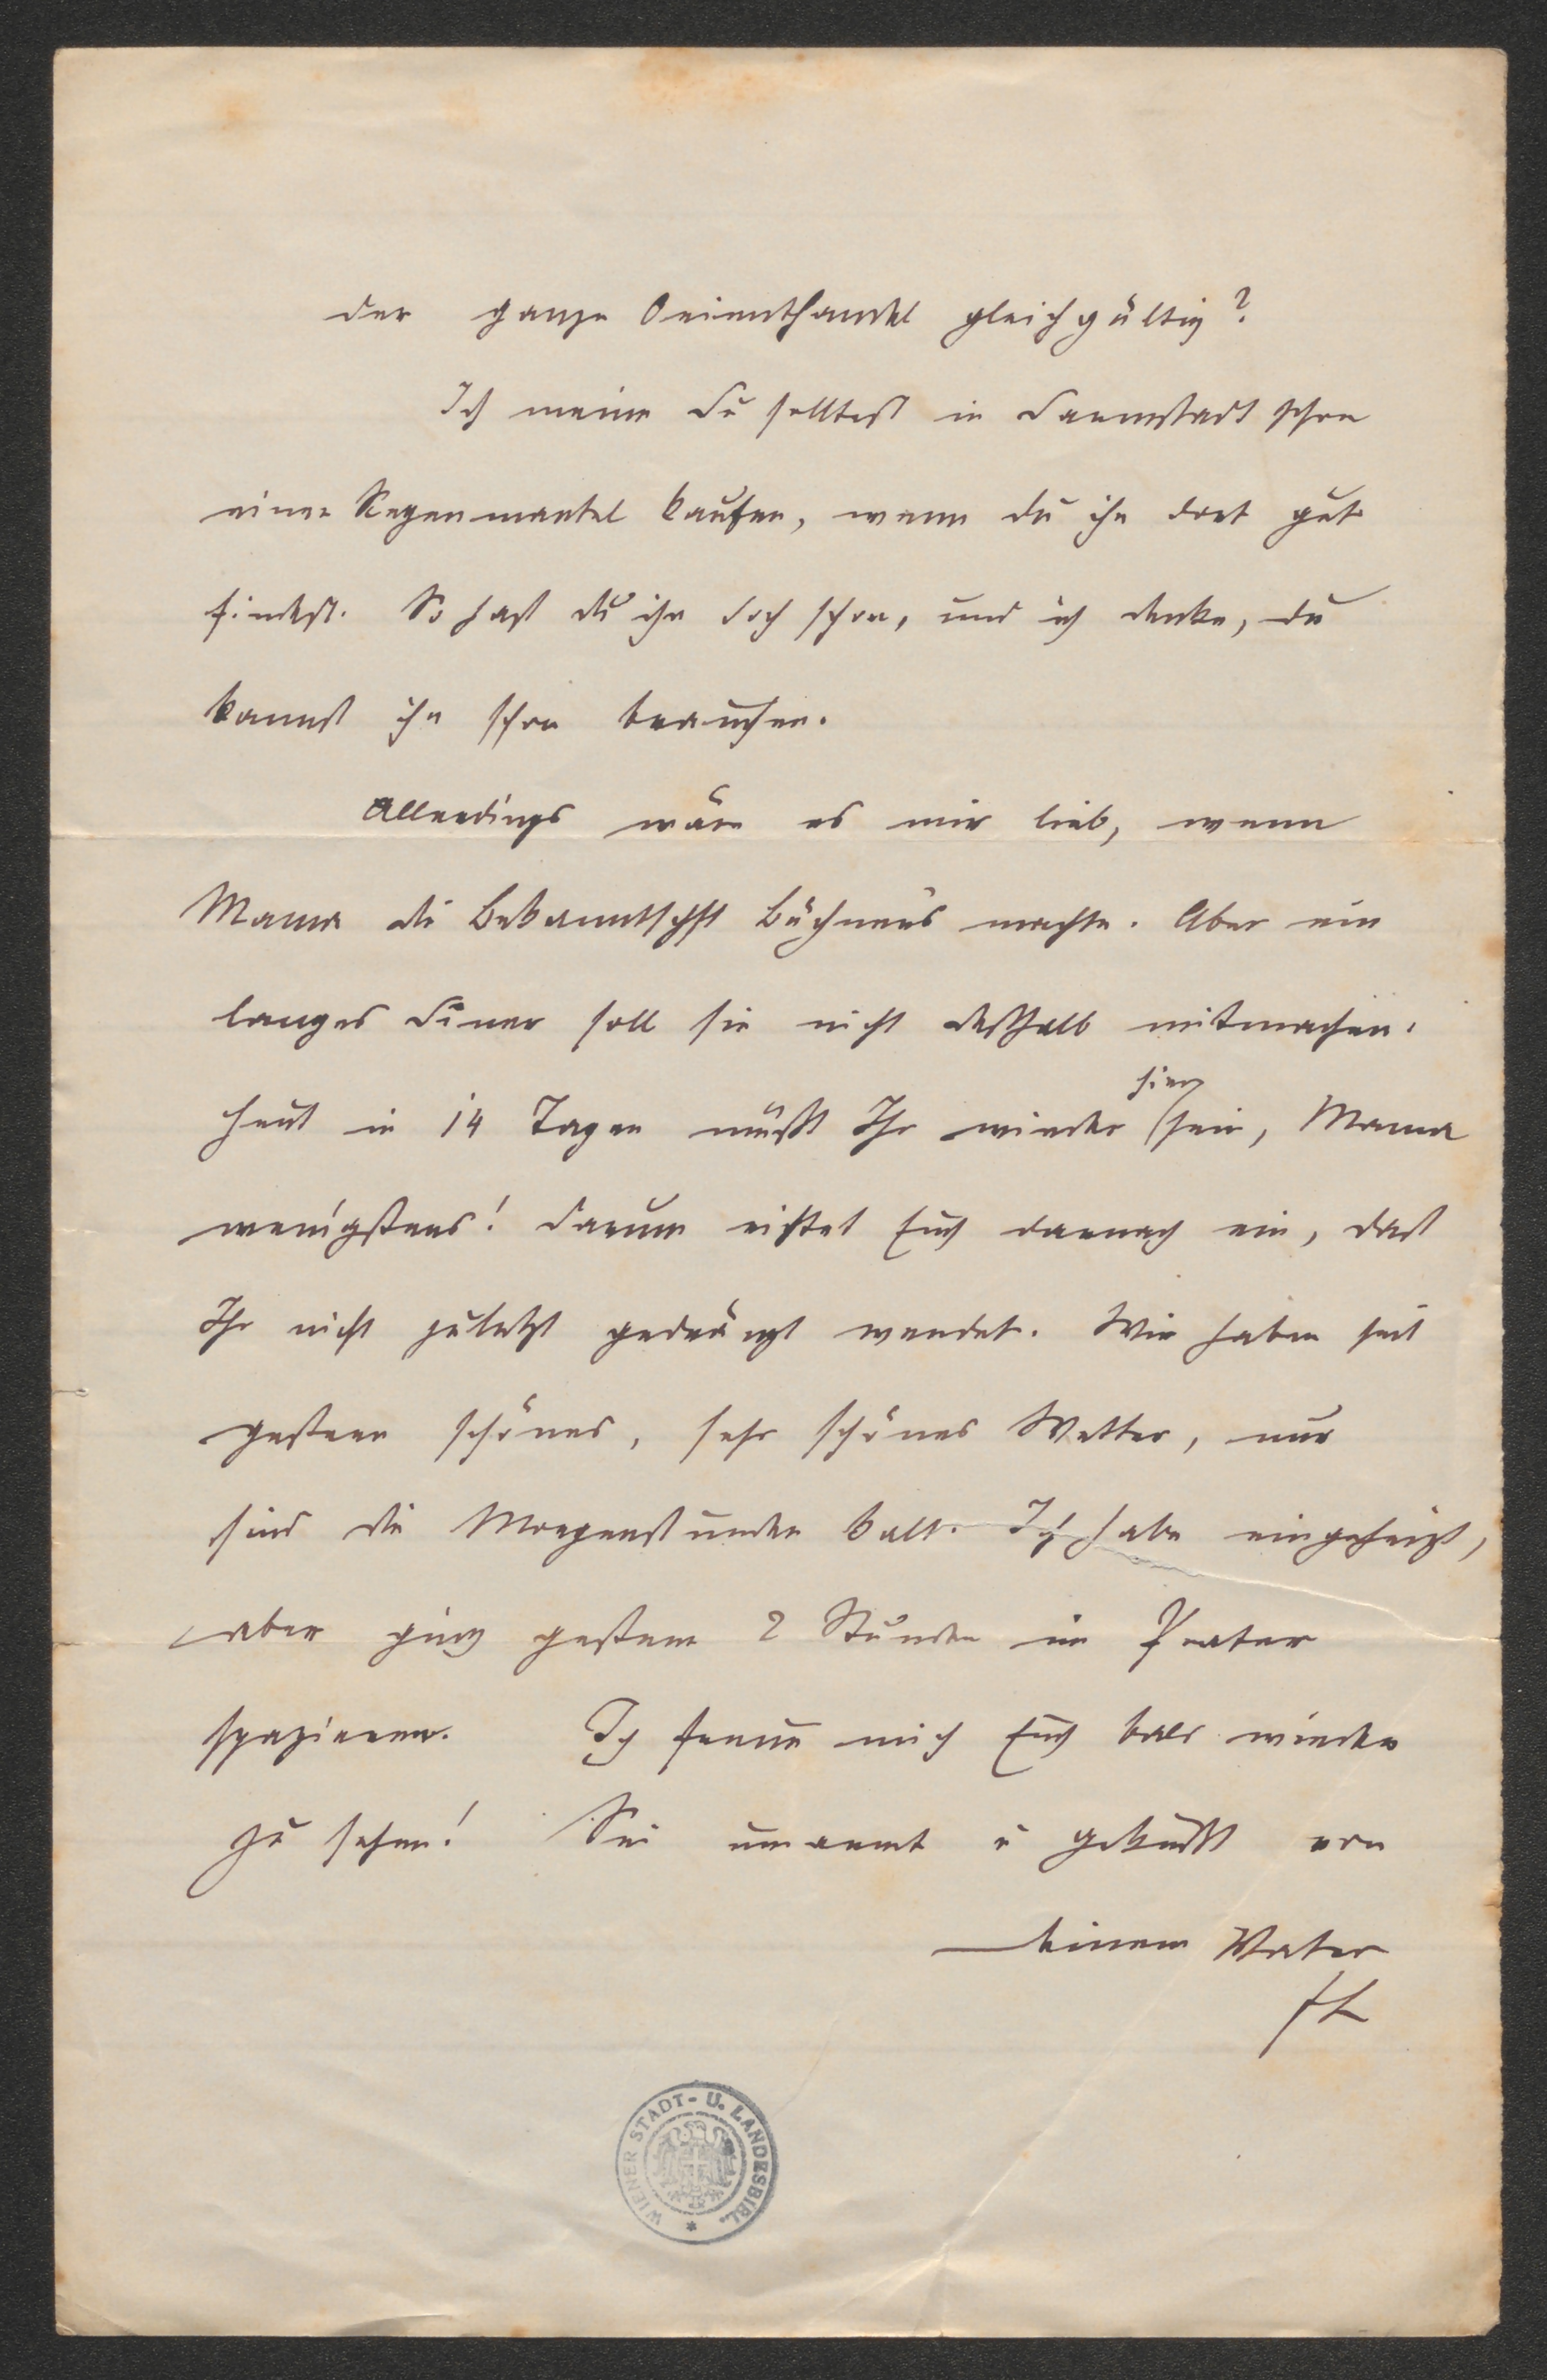 der ganze Orienthandel gleichgültig?
Ich meine Du solltest in Darmstadt schon
einen Regenmantel kaufen, wenn du ihn dort gut
findest. So hast du ihn doch schon, und ich denke, du
kannst ihn schon brauchen.
Allerdings wäre es mir lieb, wenn
Mama die Bekanntschft Büchners machte. Aber ein
langes Diner soll sie nicht deßhalb mitmachen.
Heut in 14 Tagen müßt Ihr wieder hier sein, Mama
wenigstens! Darum richtet Euch darnach ein, daß
Ihr nicht zuletzt gedrängt werdet. Wir haben seit
gestern schönes, sehr schönes Wetter, nur
sind die Morgenstunden kalt. Ich habe eingeheizt,
aber ging gestern 2 Stunden im Prater
spazieren. Ich freue mich Euch bald wieder
zu sehen! Sei umarmt u geküßt von
deinem Vater
WIENER STADT- U. LANDESBIBL.